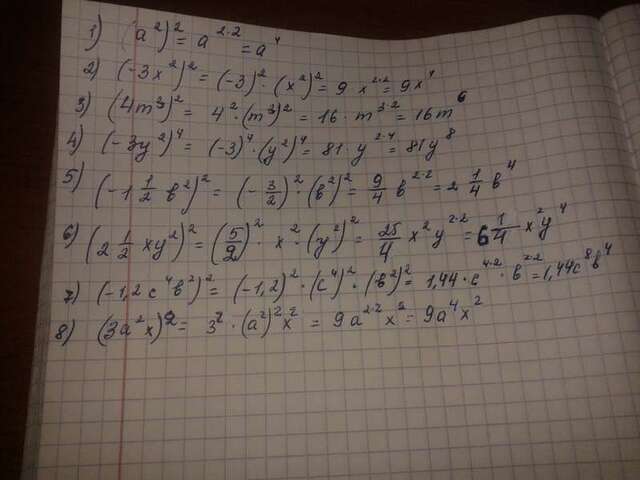 1) (a²)² = a²·² = a⁴
2) (-3x²)² = (-3)² · (x²)² = 9 x²·² = 9x⁴
3) (4m³)² = 4² · (m³)² = 16 · m³·² = 16m⁶
4) (-3y²)⁴ = (-3)⁴ · (y²)⁴ = 81 · y²·⁴ = 81y⁸
5) (-1 1/2 в²)² = (-3/2)² · (в²)² = 9/4 в²·² = 2 1/4 в⁴
6) (2 1/2 xy²)² = (5/2)² · x² · (y²)² = 25/4 x² y²·² = 6 1/4 x² y⁴
7) (-1,2 c⁴в²)² = (-1,2)² · (c⁴)² · (в²)² = 1,44 · c⁴·² · в²·² = 1,44c⁸в⁴
8) (3a²x)² = 3² · (a²)² x² = 9a²·² x² = 9a⁴x²